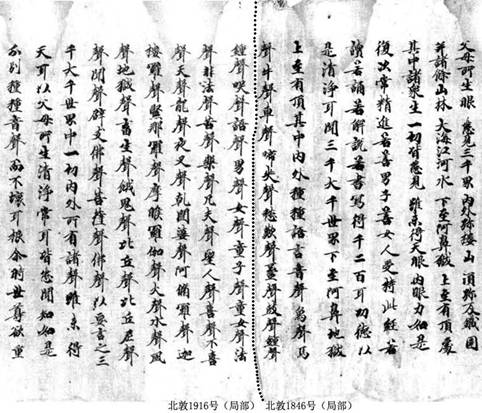 父母所生眼 悉見三千界 內外弥楼山 須弥及鐵圍
并諸餘山林 大海江河水 下至阿鼻獄 上至有頂處
其中諸衆生 一切皆悉見 雖未得天眼 肉眼力如是
復次常精進若善男子善女人受持此經若
讀若誦若解說若書寫得千二百耳功德以
是清淨耳聞三千大千世界下至阿鼻地獄
上至有頂其中內外種種語言音聲象聲馬
聲牛聲車聲啼哭聲愁歎聲螺聲鼓聲鍾聲
鈴聲咲聲語聲男聲女聲童子聲童女聲法
聲非法聲苦聲樂聲凡夫聲聖人聲喜聲不喜
聲天聲龍聲夜叉聲乾闥婆聲阿脩羅聲迦
樓羅聲緊那羅聲摩睺羅伽聲火聲水聲風
聲地獄聲畜生聲餓鬼聲比丘聲比丘尼聲
聲聞聲辟支佛聲菩薩聲佛聲以要言之三
千大千世界中一切內外所有諸聲雖未得
天耳以父母所生清淨常耳皆悉聞知如是
分別種種音聲而不壞耳根尒時世尊欲重
北敦1916号（局部） 北敦1846号（局部）